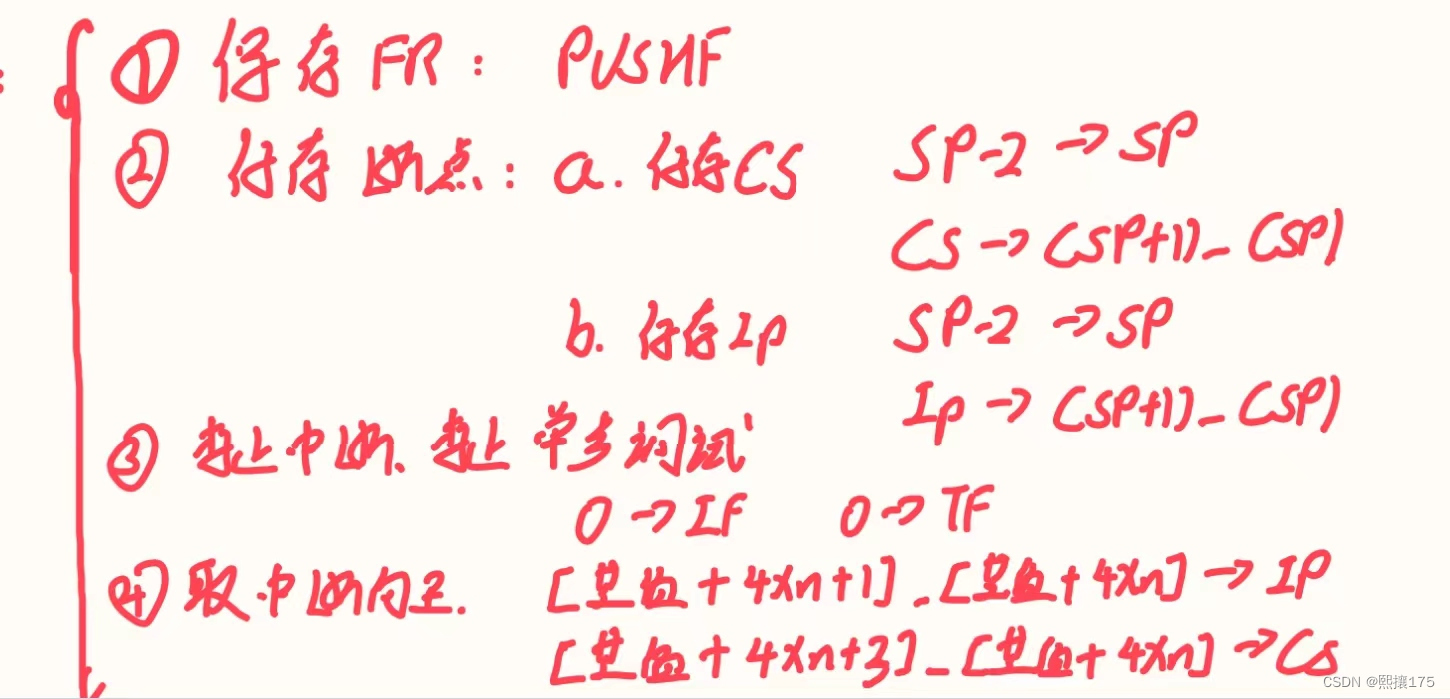 ① 保存FR： PUSHF
② 保存断点： a. 保存CS SP-2 → SP
CS → (SP+1)_(SP)
b. 保存IP SP-2 → SP
IP → (SP+1)_(SP)
③ 禁止中断、禁止单步调试
0 → IF 0 → TF
④ 取中断向量. [基值 + 4×n+1]_[基值 + 4×n] → IP
[基值 + 4×n+3]_[基值 + 4×n] → CS
CSDN @熙攘175